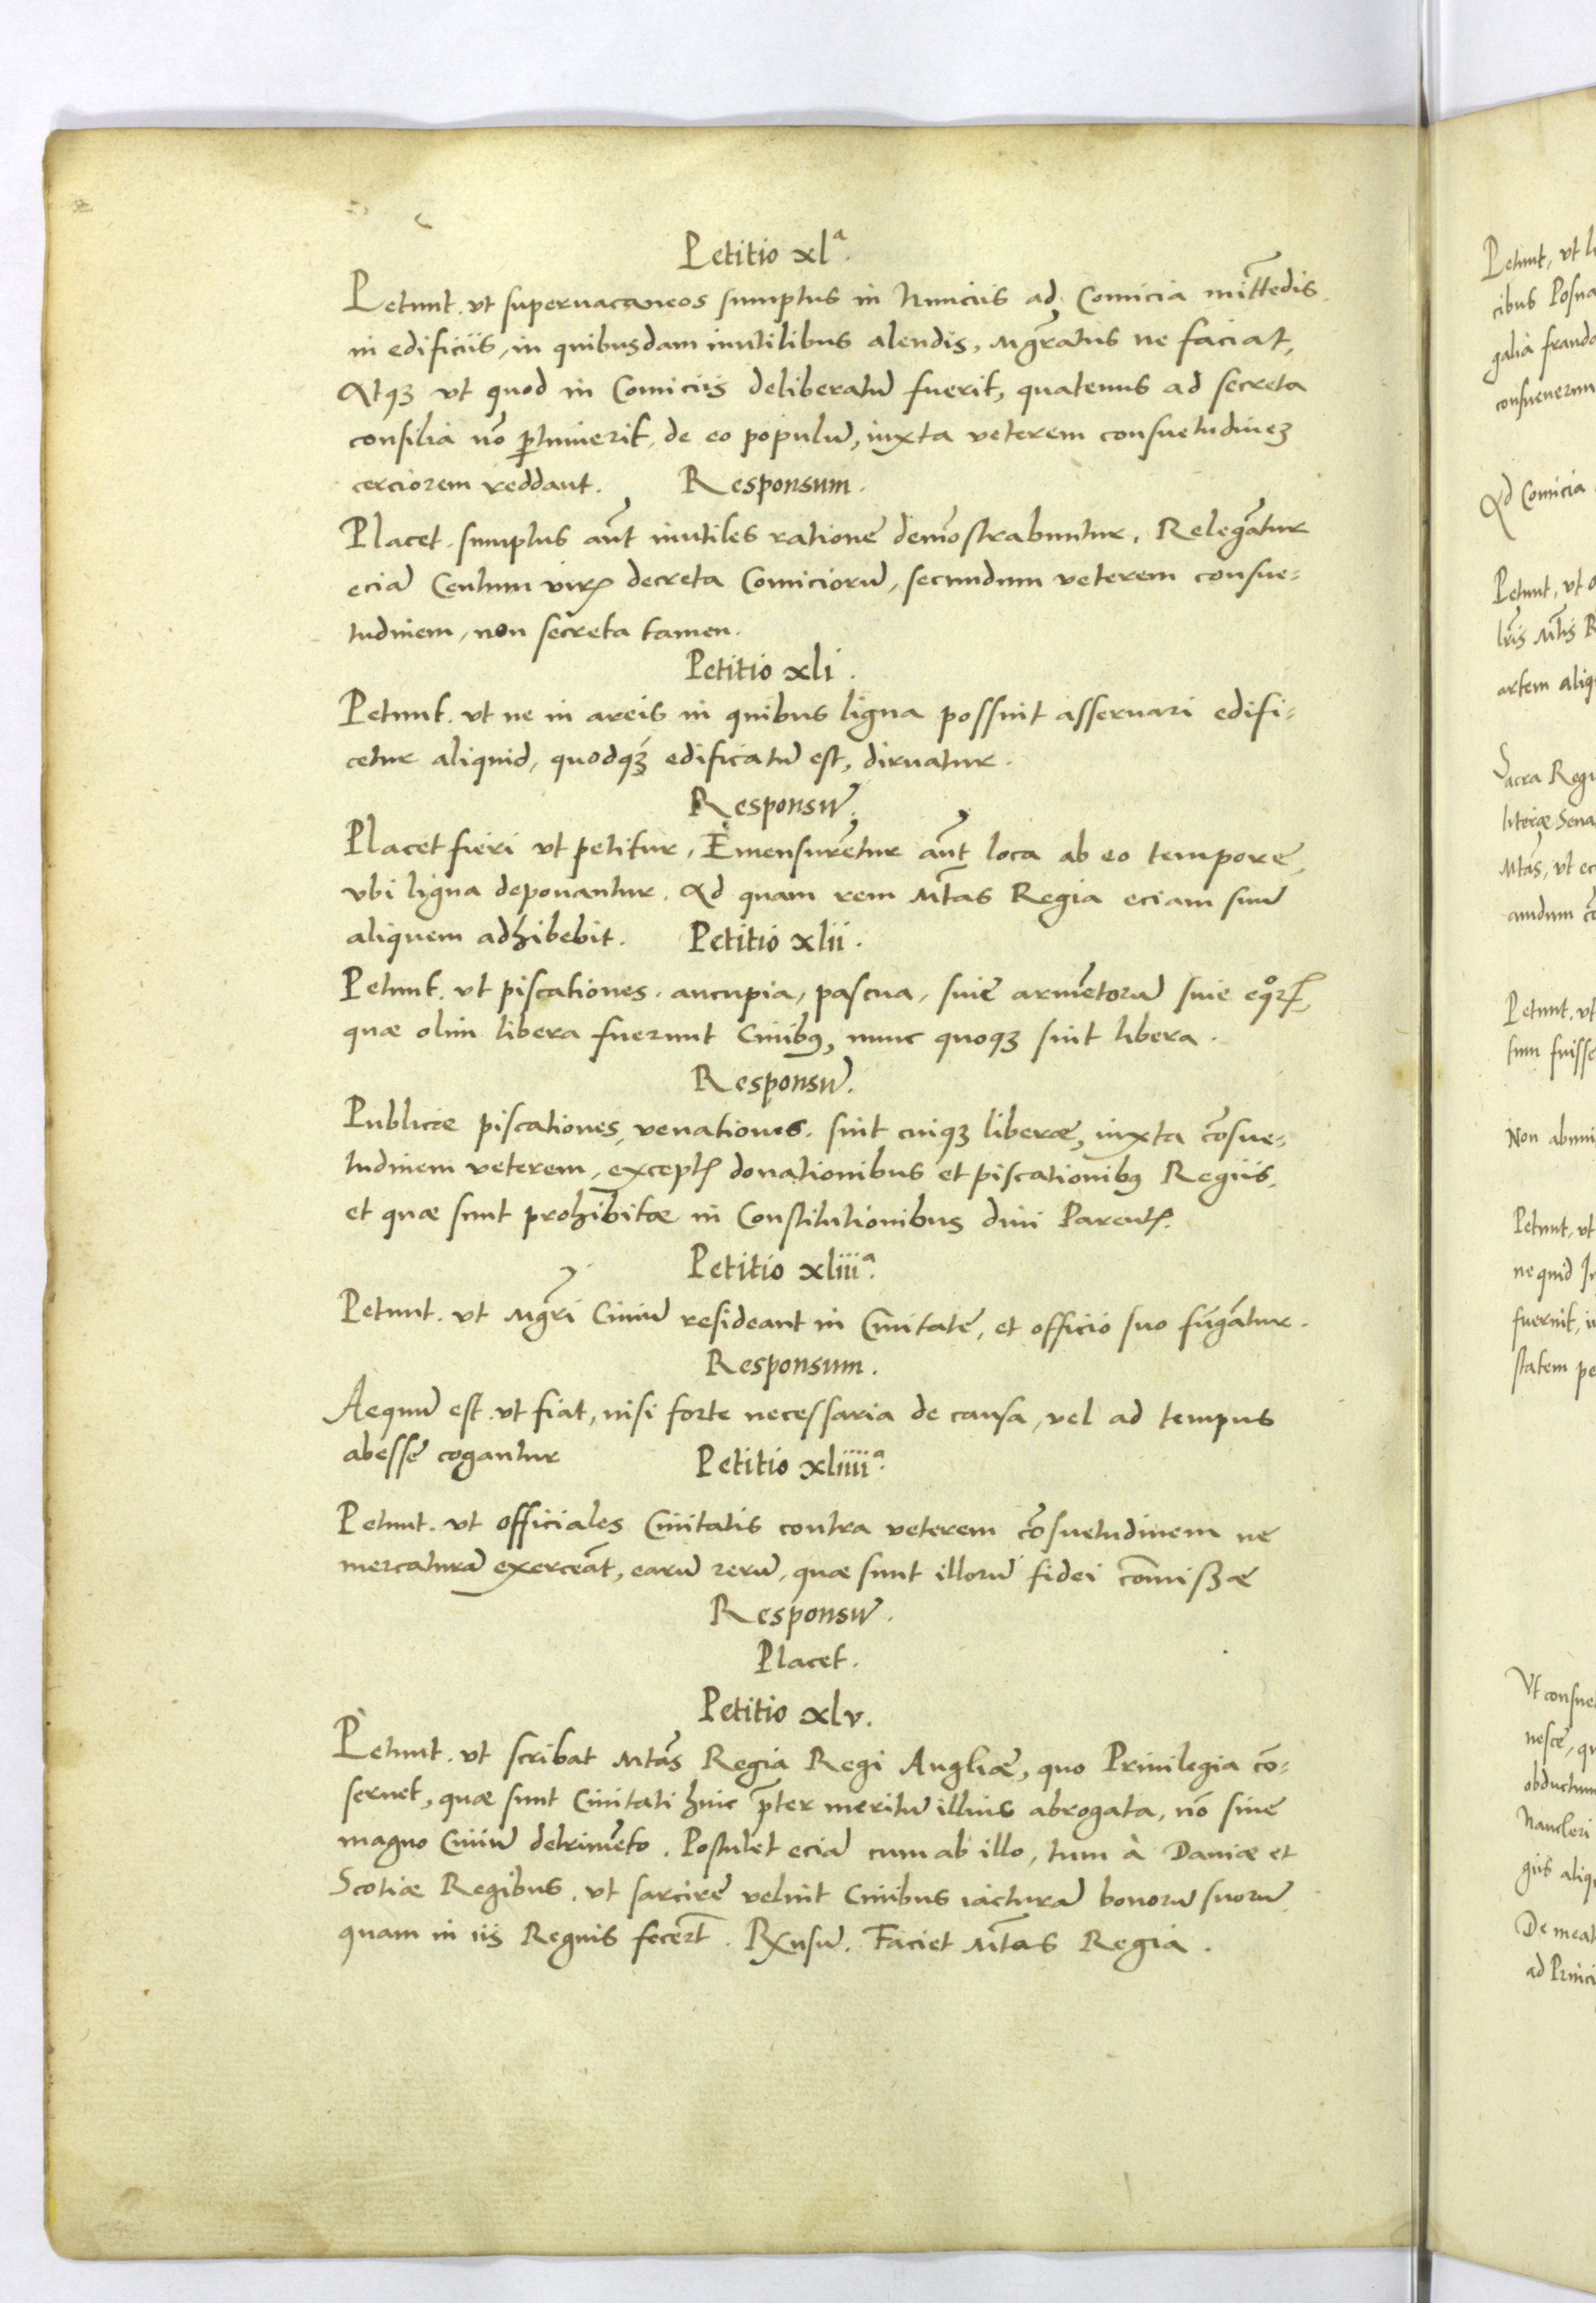 Petitio xl<sup>a</sup>.
Petunt. vt superuacaneos sumptus in Nunciis ad Comicia mitt̃edis
in edificiis, in quibusdam inutilibus alendis, Mgr̃atus ne faciat,
Atqꝫ vt quod in Comiciis deliberatũ fuerit, quatenus ad secreta
consilia nõ ꝑtinuerit, de eo populũ, iuxta veterem consuetudineꝫ
cerciorem reddant. Responsum.
Placet. sumptus aũt inutiles ratione demõstrabuntur. Relegãtur
eciã Centum virꝝ decreta Comiciorũ, secundum veterem consue-
tudinem, non secreta tamen.
Petitio xli.
Petunt. vt ne in areis in quibus ligna possint asseruari edifi-
cetur aliquid, quodqꝫ edificatũ est, diruatur.
Responsũ.
Placet fieri vt petitur, Emensurẽtur aũt loca ab eo tempore,
vbi ligna deponantur. Ad quam rem Mt̃as Regia eciam suũ
aliquem adhibebit. Petitio xlii.
Petunt. vt piscationes. aucupia, pascua, siue armẽtorũ siue eqͦꝝ,
quæ olim libera fuerunt Ciuibꝰ, nunc quoqꝫ sint libera.
Responsũ.
Publicæ piscationes, venationes. sint cuiqꝫ liberæ, iuxta cõsue-
tudinem veterem, exceptꝭ donationibus et piscationibꝰ Regiis,
et quæ sunt prohibitæ in Constitutionibus diui Parentꝭ.
Petitio xliii<sup>a</sup>.
Petunt. vt Mgr̃i Ciuiũ resideant in Ciuitate, et officio suo fũgãtur.
Responsum.
Aequũ est. vt fiat, nisi forte necessaria de causa, vel ad tempus
abesse cogantur Petitio xliiii<sup>a</sup>.
Petunt. vt officiales Ciuitatis contra veterem cõsuetudinem ne
mercaturã exerceãt, earũ rerũ, quæ sunt illorũ fidei cõmißæ
Responsũ.
Placet.
Petitio xlv.
Petunt. vt scribat Mt̃as Regia Regi Angliæ, quo Priuilegia cõ-
seruet, quæ sunt Ciuitati huic p̃ter meritũ illius abrogata, nõ sine
magno Ciuiũ detrimẽto. Postulet eciã cum ab illo, tum à Daniæ et
Scotiæ Regibus. vt sarcire velint Ciuibus iacturã bonorũ suorũ
quam in iis Regnis fecer̃t. Rxnsũ. Faciet Mt̃as Regia.
Petunt, vt
cibus
galia
Ad Comicia
Petunt, vt
artem
Sacra
literæ
Mt̃as, vt
Petunt. vt
tum
Non
Petunt, vt
ne quid
fuerint,
statem
Vt
obductum
Naucleri
giis
De
ad